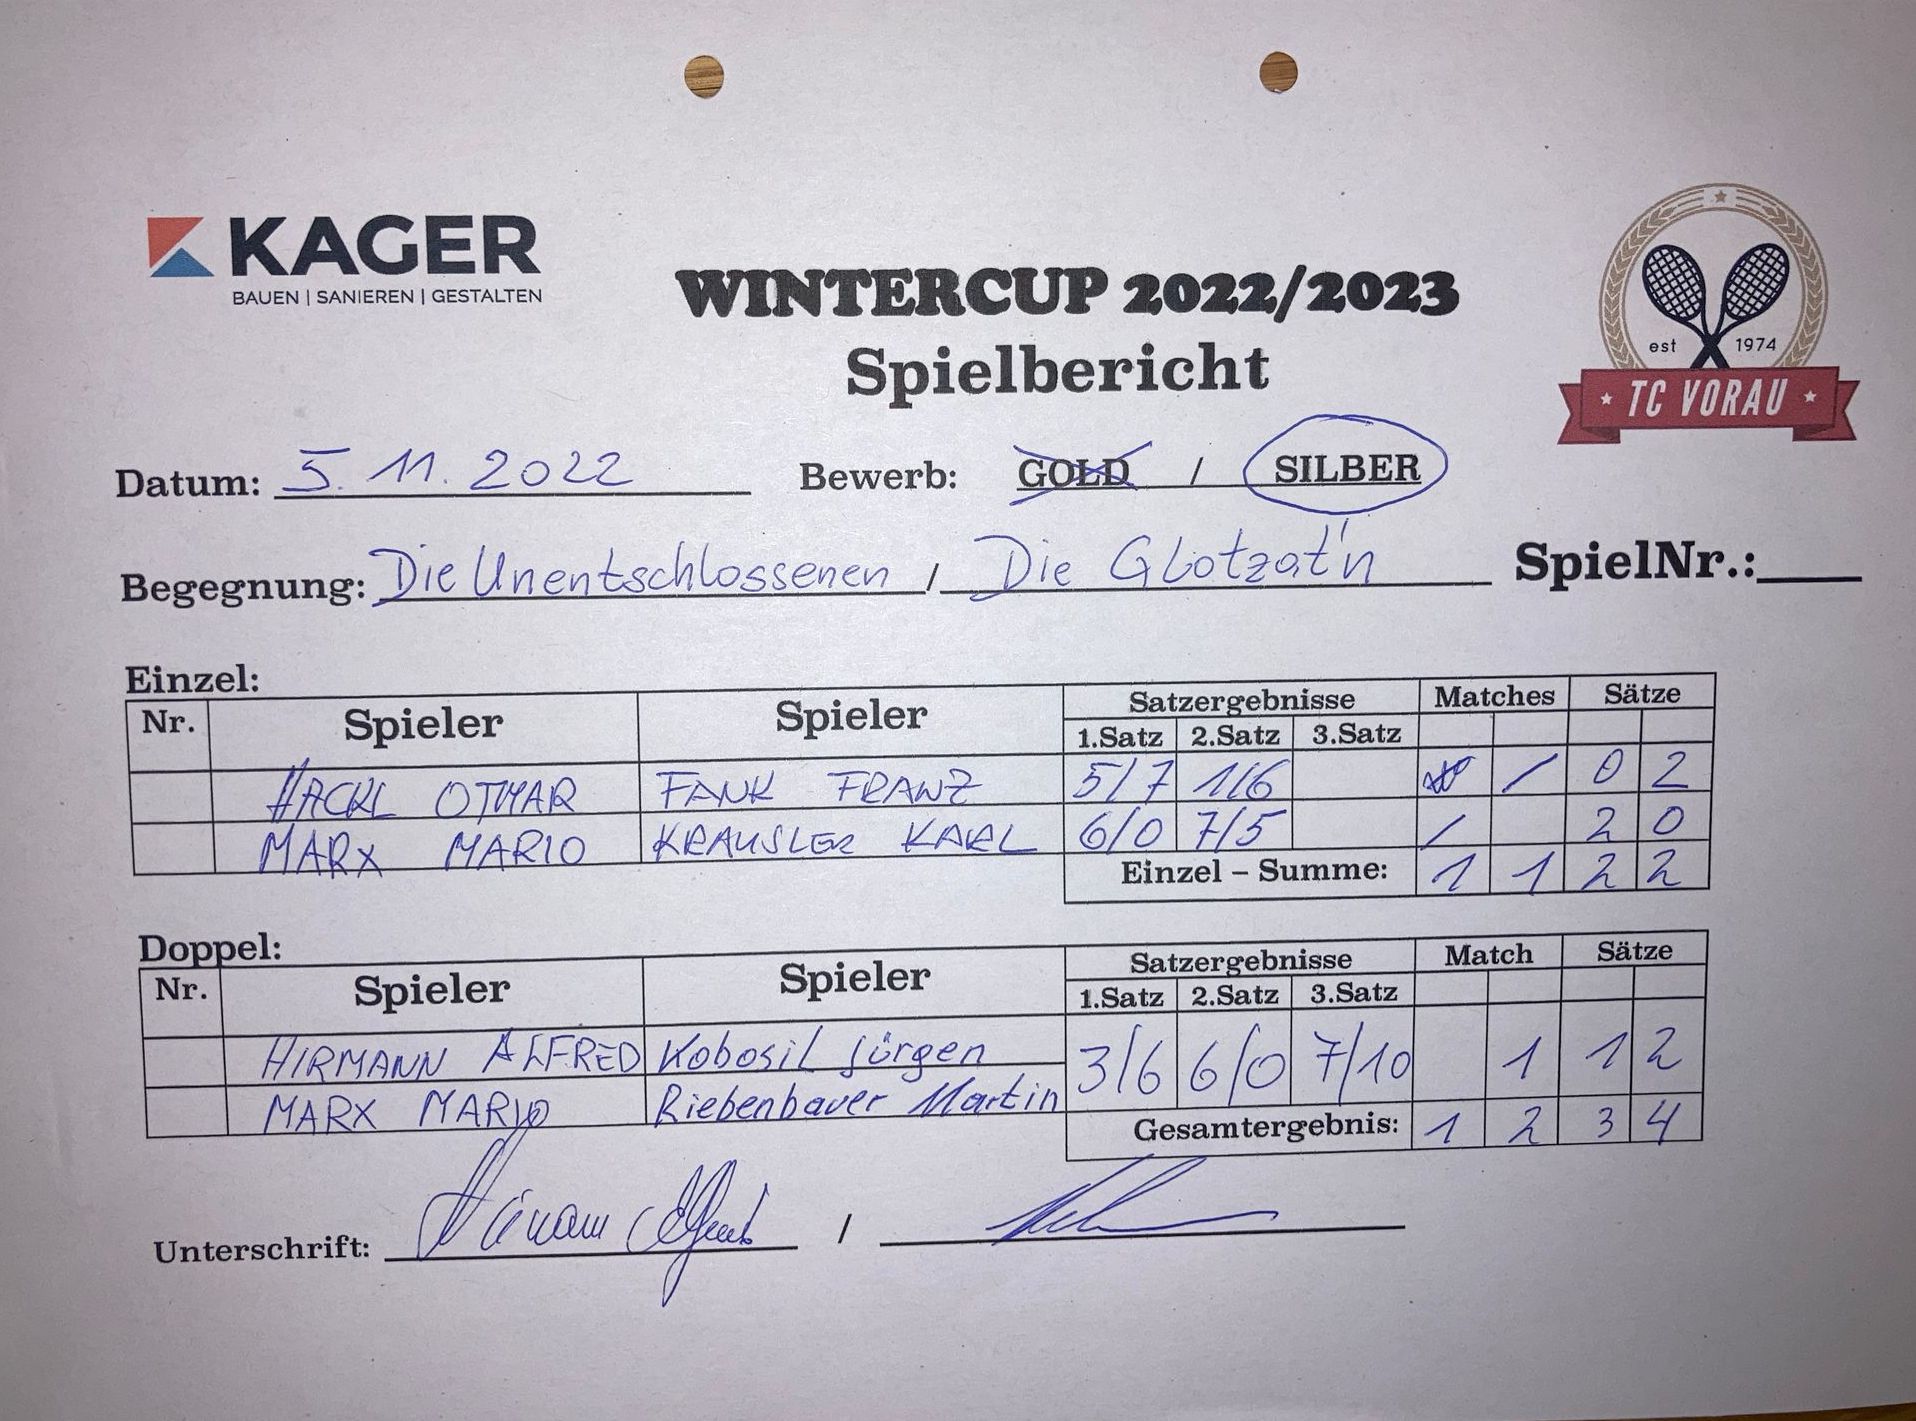 KAGER
BAUEN | SANIEREN | GESTALTEN
WINTERCUP 2022/2023
Spielbericht
est 1974
TC VORAU
Datum: 5.11.2022 Bewerb: GOLD / SILBER
Begegnung: Die Unentschlossenen / Die Glotzat'n SpielNr.:
Einzel:
Nr. Spieler Spieler Satzergebnisse Matches Sätze
1.Satz 2.Satz 3.Satz
HACKL OTMAR FANK FRANZ 5/7 1/6 / 0 2
MARX MARIO KRAUSLER KARL 6/0 7/5 / 2 0
Einzel – Summe: 1 1 2 2
Doppel:
Nr. Spieler Spieler Satzergebnisse Match Sätze
1.Satz 2.Satz 3.Satz
HIRMANN ALFRED Kobosil Jürgen 3/6 6/0 7/10 1 1 2
MARX MARIO Riebenbauer Martin
Gesamtergebnis: 1 2 3 4
Unterschrift: /